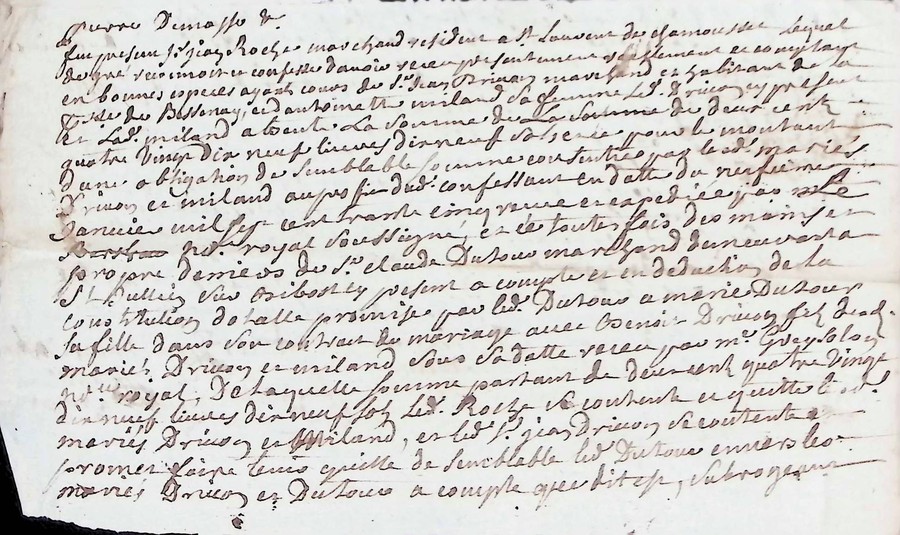 pierre Demasso &.
fut present Sr. jean Roche marchand resident a St. Laurent de chamousset lequel
de gré reconnoit et confesse d'avoir receu presentement reellement et comptant
en bonnes especes ayant cours de Sr. jean Dricon marchand et habitant de la
psse de Bessenay, et d'antoinette miland sa femme led. Dricon cy present
et lad. miland absente La somme de La Somme de deux cent
quatre vingt dix neuf livres dix neuf sols et ce pour le montant
d'une obligation de semblable somme consentie par lesd. mariés
Dricon et miland au profit dud. confessant en datte du neufieme
janvier mil sept cent trante cinq receue et expediée par Me
nore. royal soussigné, et ce toutes fois des mains et
propre deniers de Sr. claude Dutour marchand demeurant a
St. jullien sur bibost cy present a compte et en deduction de la
constitution dotalle promise par led. Dutour a marie Dutour
sa fille dans son contrat de mariage avec Benoit Dricon fils desd.
mariés Dricon et miland sous sa datte receu par me. Greysolon
nore. royal, De laquelle somme partant de deux cent quatre vingt
dix neuf livres dix neuf sols led. Roche se contente et quitte lesd.
mariés Dricon et Miland, et led. Sr. jean Dricon se contente et
promet faire tenir quitte de semblable led. Dutour envers les
mariés Dricon et Dutour a compte que dit est, subrogeant